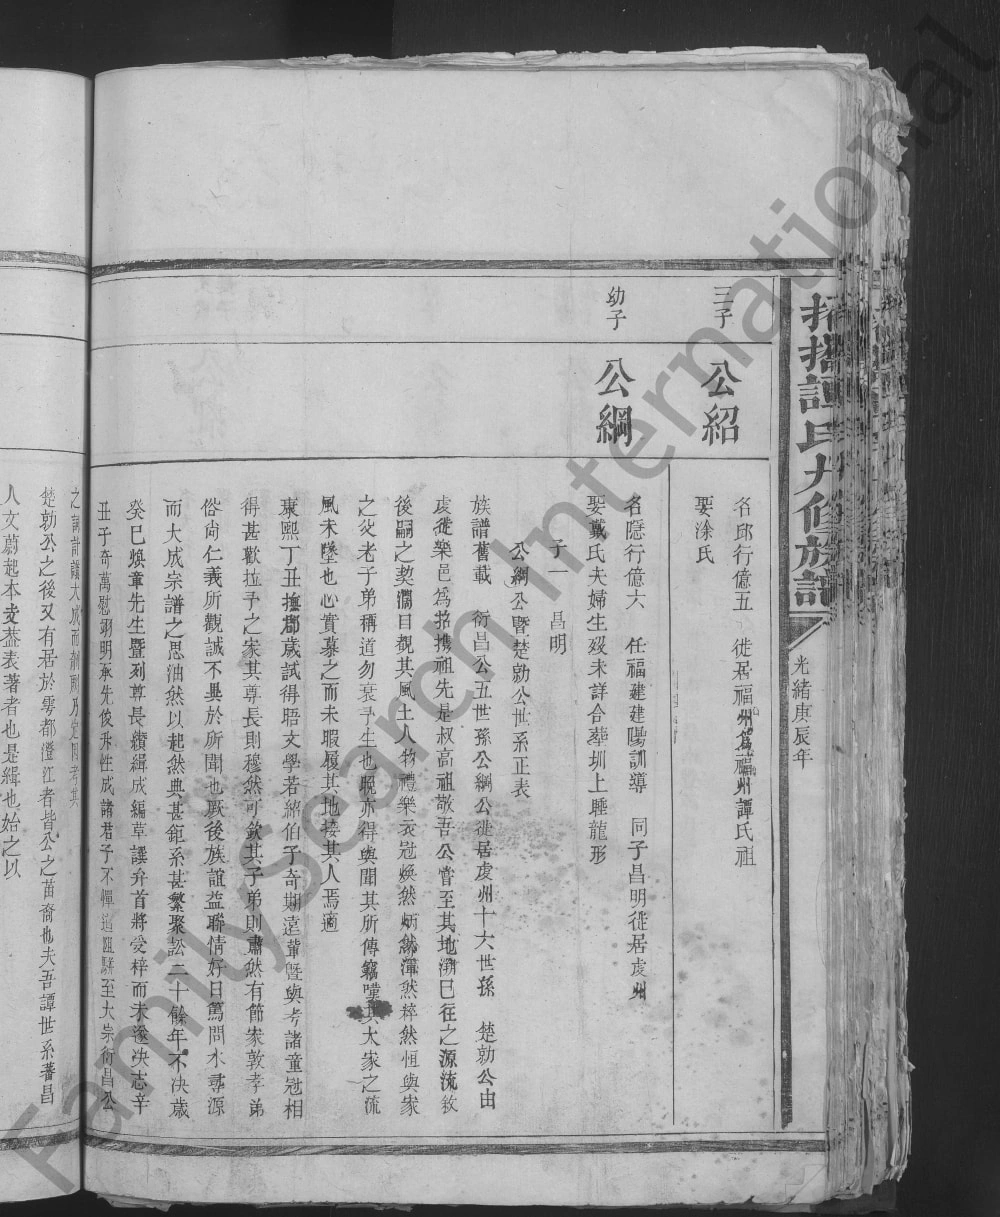 招攜譚氏九修族譜
光緒庚辰年
三子
公紹
名邱行億五 徙居福州為福州譚氏祖
娶涂氏
幼子
公綱
名隱行億六 任福建建陽訓導 同子昌明徙居虔州
娶戴氏夫婦生歿未詳合葬圳上睡龍形
子一 昌明
公綱公暨楚勍公世系正表
族譜舊載 衍昌公五世孫公綱公徙居虔州十六世孫 楚勍公由
虔徙樂邑為招攜祖先是叔高祖敬吾公嘗至其地溯巳往之源流敘
後嗣之契濶目覩其風土人物禮樂衣冠煥然炳然渾然粹然恒與家
之父老子弟稱道勿衰予生也晚亦得與聞其所傳竊嘆其大家之流
風未墜也心實慕之而未暇履其地接其人焉適
康熙丁丑撫郡歲試得晤文學若綿伯子奇期遠輩暨與考諸童冠相
得甚歡拉予之家其尊長則穆然可欽其子弟則肅然有節家敦孝弟
俗尚仁義所觀誠不異於所聞也厥後族誼益聯情好日篤問水尋源
而大成宗譜之思油然以起然典甚鉅系甚繁聚訟二十餘年不決歲
癸巳煥章先生暨列尊長纘緝成編草譔弁首將受梓而未遂决志辛
丑子奇萬慰翊明承先俊升性成諸君子不憚 至大宗衍昌公
楚勍公之後又有居於雩都澄江者皆公之苗裔也夫吾譚世系蕃昌
人文蔚起本支益表著者也是緝也始之以
FamilySearch International